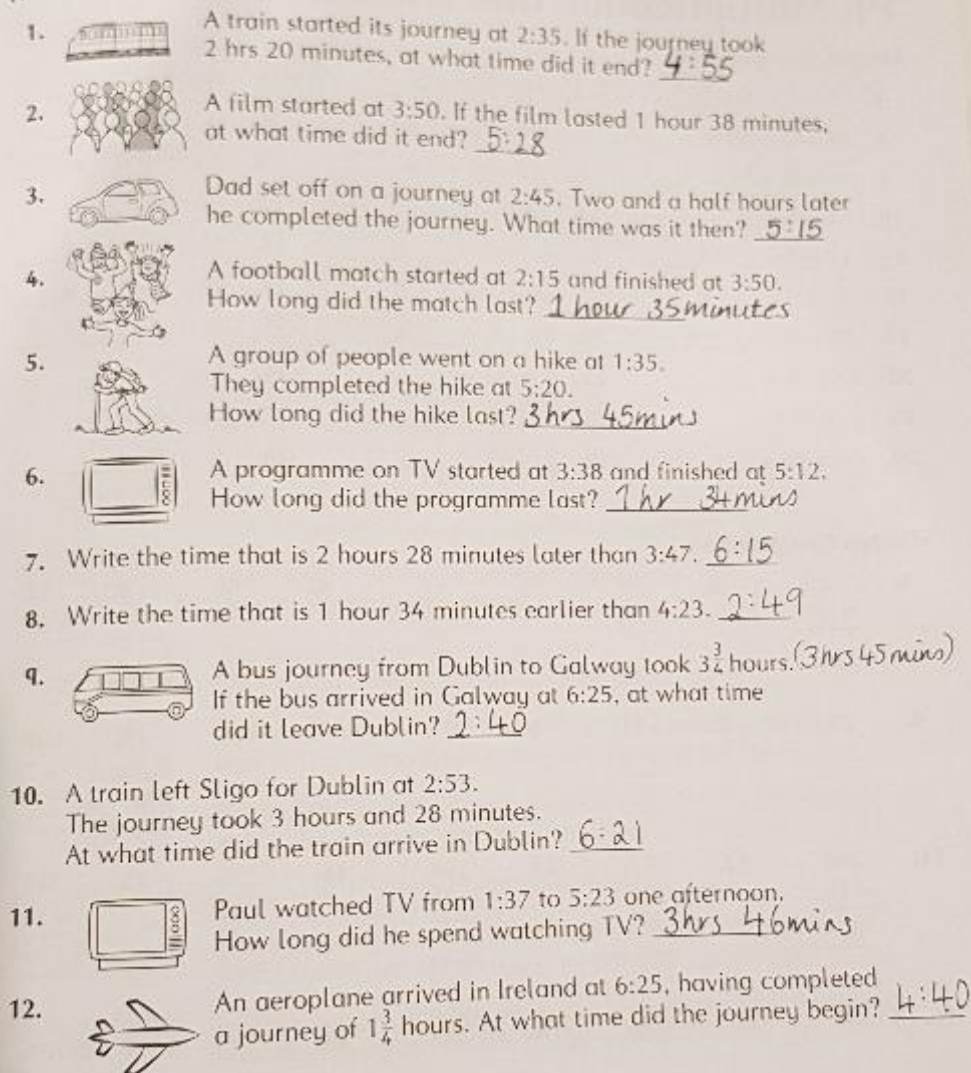 1. A train started its journey at 2:35. If the journey took
2 hrs 20 minutes, at what time did it end? 4:55
2. A film started at 3:50. If the film lasted 1 hour 38 minutes,
at what time did it end? 5:28
3. Dad set off on a journey at 2:45. Two and a half hours later
he completed the journey. What time was it then? 5:15
4. A football match started at 2:15 and finished at 3:50.
How long did the match last? 1 hour 35minutes
5. A group of people went on a hike at 1:35.
They completed the hike at 5:20.
How long did the hike last? 3hrs 45mins
6. A programme on TV started at 3:38 and finished at 5:12.
How long did the programme last? 1hr 34mins
7. Write the time that is 2 hours 28 minutes later than 3:47. 6:15
8. Write the time that is 1 hour 34 minutes earlier than 4:23. 2:49
9. A bus journey from Dublin to Galway took 3¾ hours. (3hrs 45mins)
If the bus arrived in Galway at 6:25, at what time
did it leave Dublin? 2:40
10. A train left Sligo for Dublin at 2:53.
The journey took 3 hours and 28 minutes.
At what time did the train arrive in Dublin? 6:21
11. Paul watched TV from 1:37 to 5:23 one afternoon.
How long did he spend watching TV? 3hrs 46mins
12. An aeroplane arrived in Ireland at 6:25, having completed
a journey of 1¾ hours. At what time did the journey begin? 4:40